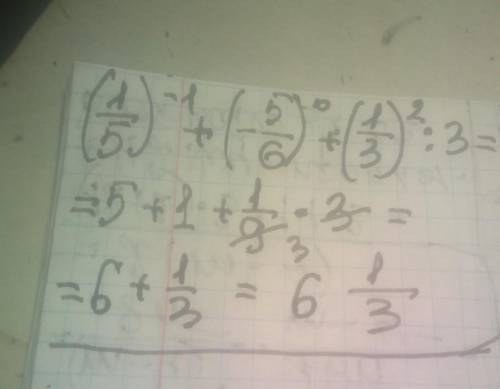 (1/5)⁻¹ + (-5/6)⁰ + (1/3)² : 3 =
= 5 + 1 + 1/9 · 3 =
3
= 6 + 1/3 = 6 1/3